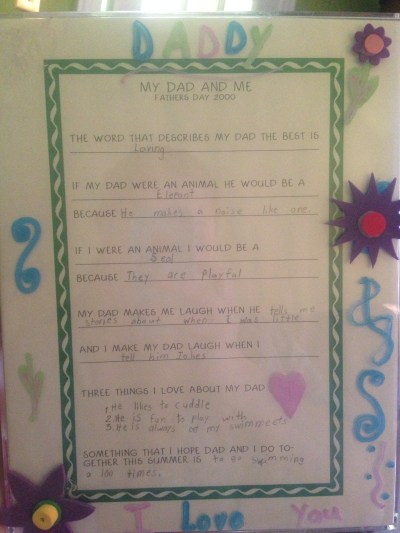 DADDY
MY DAD AND ME
FATHERS DAY 2000
THE WORD THAT DESCRIBES MY DAD THE BEST IS
Loving
IF MY DAD WERE AN ANIMAL HE WOULD BE A
Elefant
BECAUSE He makes a noise like one.
IF I WERE AN ANIMAL I WOULD BE A
Seal
BECAUSE They are Playful
MY DAD MAKES ME LAUGH WHEN HE tells me
stories about when I was little
AND I MAKE MY DAD LAUGH WHEN I
tell him Jokes
THREE THINGS I LOVE ABOUT MY DAD
1. He likes to cuddle
2. He is fun to play with
3. He is always at my swimmeets
SOMETHING THAT I HOPE DAD AND I DO TO-
GETHER THIS SUMMER IS to go swimming
a 100 times.
I Love You